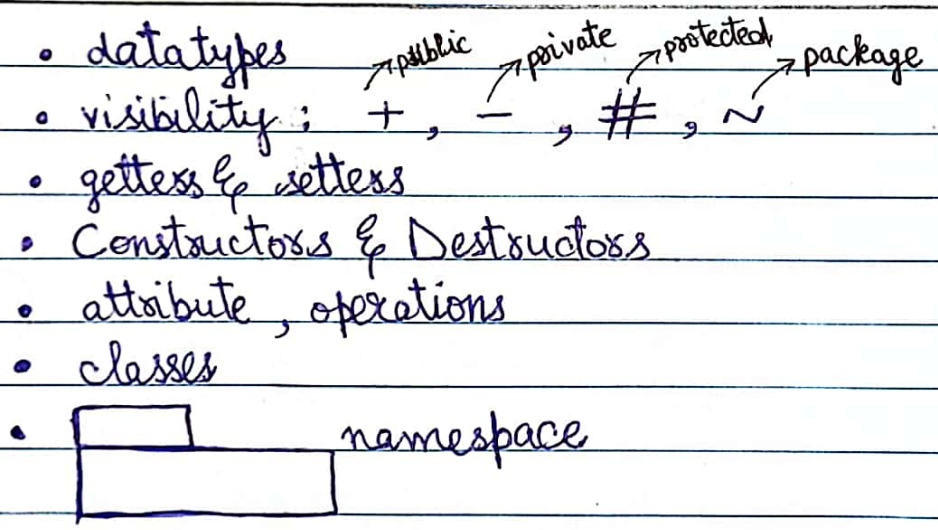 • datatypes
public private protected package
• visibility : + , - , # , ~
• getters & setters
• Constructors & Destructors
• attribute , operations
• classes
• namespace